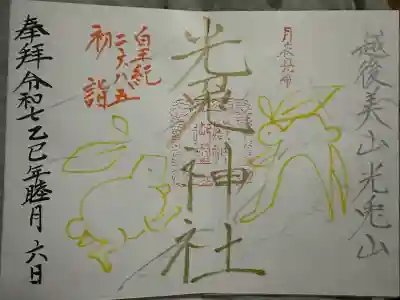 越後美山光兎山
月水其神
光兎神社
皇紀
二六八五
初詣
奉拝令和七乙巳年睦月六日